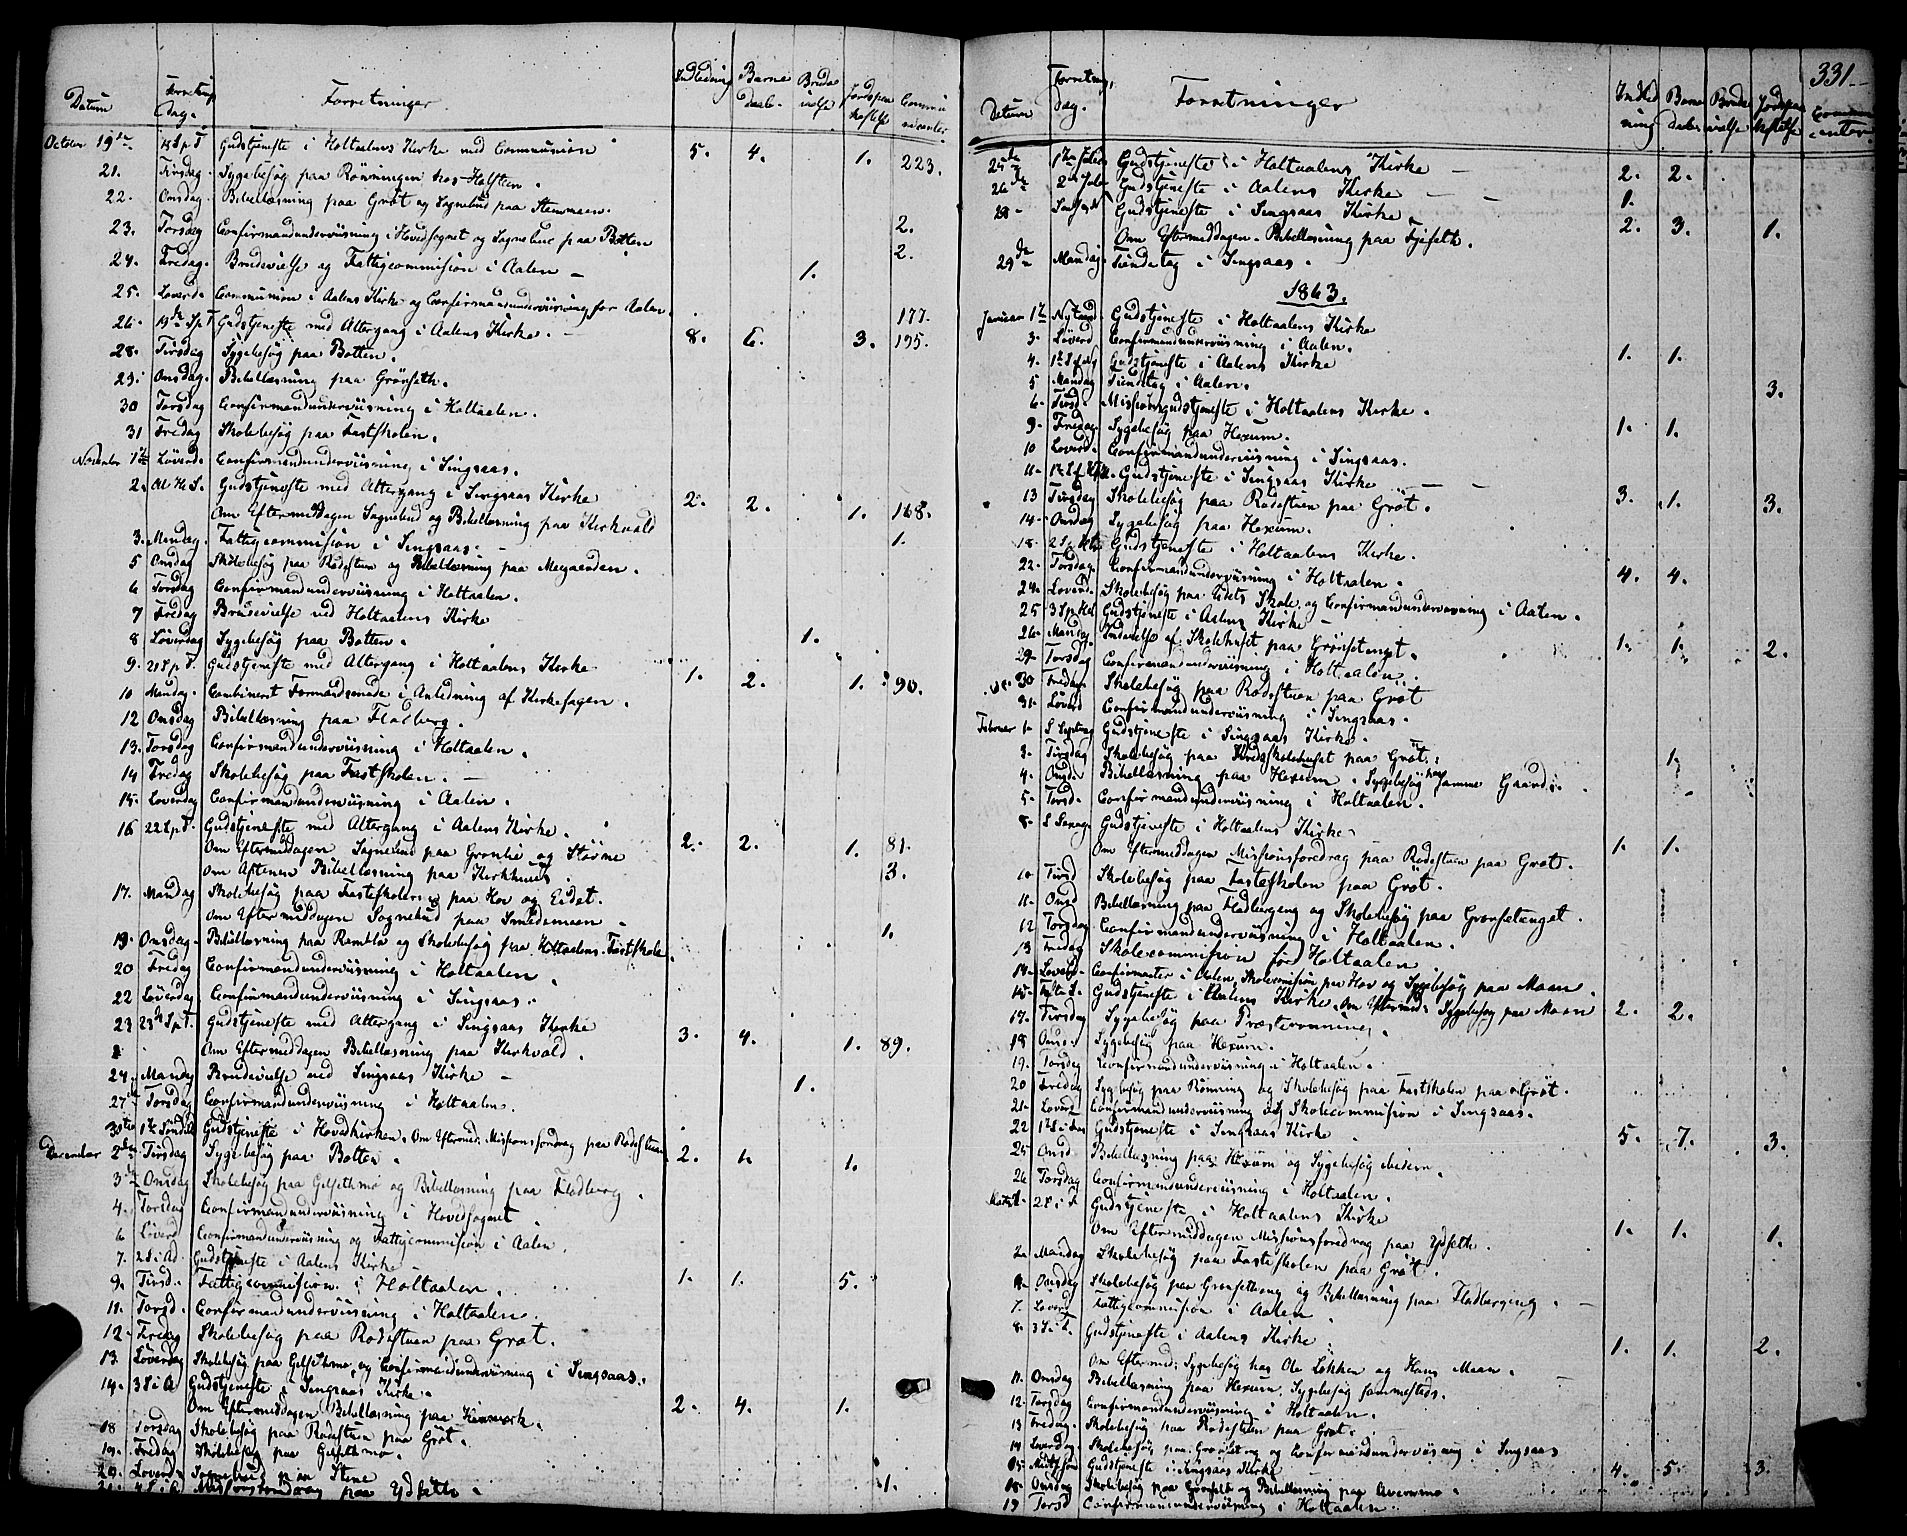 Datum Forretnings Dag. Forretninger. Indledning Barne daab. Brude vielse Jordspaa kastelse Communi canter
October 19de 18 S p T Gudstjeneste i Holtaalens Kirke med Communion 5. 4. 1. 223.
21. Tirsdag. Sygebesøg paa Rønningen hos Holsten.
22. Onsdag. Bibellæsning paa Grøt og Sognebud paa 2.
23. Torsdag Confirmandunderviisning i Hovedsognet og Sognebud paa Botten 2.
24. Fredag. Brudevielse og Fattigcommission i Aalen 1.
25. Løverd. Communion i Aalens Kirke og Confirmandunderviisning for Aalen. 177.
26. 19de S p T Gudstjeneste med Altergang i Aalens Kirke. 8. 6. 3. 195.
28. Tirsdag Sygebesøg paa Botten.
29. Onsdag. Bibellæsning paa Grønseth.
30 Torsdag Confirmandunderviisning i Holtaalen.
31 Fredag Skolebesøg paa Fastskolen.
November 1ste Løverd. Confirmandunderviisning i Singsaas.
2. Al H. S. Gudstjeneste med Altergang i Singsaas Kirke 2. 2. 1. 168.
Om Eftermiddagen Sognebud og Bibellæsning paa Kirkvold 1.
3. Mandag. Fattigcommission i Singsaas.
5 Onsdag Skolebesøg paa Rødestuen og Bibellæsning paa
6 Torsdag Confirmandunderviisning i Holtaalen.
7 Fredag Brudevielse ved Holtaalens Kirke
8 Løverdag Sygebesøg paa Botten. 1.
9. 21 S p T. Gudstjeneste med Altergang i Holtaalens Kirke 1. 2. 1. 90.
10 Mandag. Combineret Formandsmøde i Anledning af Kirkesagen.
12 Onsdag Bibellæsning paa Fladberg.
13. Torsdag Confirmandunderviisning i Holtaalen.
14 Fredag Skolebesøg paa Fastskolen.
15. Løverdag Confirmandunderviisning i Aalen.
16 22 S p T. Gudstjeneste med Altergang i Aalens Kirke. 2. 2. 1. 81.
Om Eftermiddagen Sognebud paa Grønlie og Størmo 3.
Om Aftenen Bibellæsning paa Kirkhuus
17. Mandag Skolebesøg paa Fasteskolen paa Hov og Eidet.
Om Eftermiddagen Sognebud paa Smedsmoen 1.
19. Onsdag. Bibellæsning paa Rambla og Skolebesøg paa Holtaalens Fastskole.
20 Fredag Confirmandunderviisning i Holtaalen.
22 Løverdag. Confirmandunderviisning i Singsaas.
23 23de S p T. Gudstjeneste med Altergang i Singsaas Kirke 3. 4. 1. 89.
Om Eftermiddagen Bibellæsning paa Kirkvold.
24. Mandag Brudevielse ved Singsaas Kirke 1.
27de Torsdag Confirmandunderviisning i Holtaalen.
30te 1ste Søndag Gudstjeneste i Hovedkirken. Om Efterm: Missionsforedrag paa Rødestuen 2. 1. 1.
December 2den Tirsdag Sygebesøg paa Botten.
3die Onsdag Skolebesøg paa Gelsethmo og Bibellæsning paa Fladberg.
4. Torsdag Confirmandunderviisning i Hovedsognet
6 Løverd Confirmandunderviisning og Fattigcommission i Aalen.
7. 2 S i Ad. Gudstjeneste i Aalens Kirke 1. 1. 5.
9. Tirsd. Fattigcommission i Holtaalen.
11. Torsd. Confirmandunderviisning i Holtaalen.
12. Fredag Skolebesøg paa Rødestuen paa Grøt.
13. Løverdag Skolebesøg paa Gelsethmo og Confirmandunderviisning i Singsaas.
14. 3 S i A Gudstjeneste i Singsaas Kirke. 2. 4. 1.
Om Eftermiddagen Bibellæsning paa
18 Torsdag Skolebesøg paa Rødestuen paa Grøt.
19. Fredag Skolebesøg paa Gelsethmo.
20. Løverd. Sognebud paa Stene 1.
21. 4 S i A Missionsforedrag paa Ydseth.
331
Datum Forretnings Dag. Forretninger Indled ning Barne daab Brude vielse Jordspaa kastelse Commu canter
25de 1ste Juled Gudstjeneste i Holtaalens Kirke 2. 2.
26de 2den Juled Gudstjeneste i Aalens Kirke 1.
28 Gudstjeneste i Singsaas Kirke. 2. 3. 1.
Om Eftermiddagen Bibellæsning paa Fjeseth.
29de Mandag Tiendetag i Singsaas.
1863.
Januar 1ste Nytaarsd. Gudstjeneste i Holtaalens Kirke
3. Løverd Confirmandunderviisning i Aalen.
4. Gudstjeneste i Aalens Kirke 1. 1. 3.
5 Mandag Tiendetag i Aalen.
6. Tirsd. Missionsgudstjeneste i Holtaalens Kirke.
9. Fredag. Sygebesøg paa Hexum. 1. 1.
10 Løverd. Confirmandunderviisning i Singsaas.
11. Gudstjeneste i Singsaas Kirke 3. 1. 3.
13 Tirsdag Skolebesøg paa Rødestuen paa Grøt.
14. Onsdag Sygebesøg paa Hexum.
18. Gudstjeneste i Holtaalens Kirke. 4. 4.
22. Torsdag. Confirmandunderviisning i Holtaalen.
24. Løverd. Skolebesøg paa Eidets Skole og Confirmandunderviisning i Aalen.
25 Gudstjeneste i Aalens Kirke 1. 1. 2.
26. Mandag. Indvielse af Skolehuset paa Grønsetenget.
29. Torsdag Confirmandunderviisning i Holtaalen.
30 Fredag. Skolebesøg paa Rødestuen paa Grøt
31. Løverd Confirmandunderviisning i Singsaas.
Februar 1. Gudstjeneste i Singsaas Kirke. 1.
3. Tirsdag Skolebesøg paa Kredsskolehuset paa Grøt.
4. Onsd. Bibellæsning paa Hexum. Sygebesøg paa samme Gaard.
5. Torsd. Confirmandunderviisning i Holtaalen.
8. Gudstjeneste i Holtaalens Kirke 1. 1.
Om Eftermiddagen Missionsforedrag paa Rødestuen paa Grøt.
10 Tirsd Skolebesøg paa Fasteskolen paa Grøt.
11. Onsd Bibellæsning paa Fladbergeng og Skolebesøg paa Grønsetenget.
12 Torsdag Confirmandunderviisning i Holtaalen.
13 Fredag Skolecommission for Holtaalen
14. Løverd. Confirmanter i Aalen, Skolecommission paa Hov og Sygebesøg paa Moan.
15. Gudstjeneste i Aalens Kirke. Om Efterm. Sygebesøg paa Moan 2. 2.
17. Tirsdag Sygebesøg paa Præsterønning.
18 Onsd. Sygebesøg paa Hexum.
19. Torsdag Confirmandunderviisning i Holtaalen.
20 Fredag Sygebesøg paa Rønning og Skolebesøg paa Fastskolen paa Grøt.
21. Løverd Confirmandunderviisning og Skolecommission i Singsaas.
22 1 S i Gudstjeneste i Singsaas Kirke 5. 7. 3.
25 Onsd. Bibellæsning paa Hexum og Sygebesøg
26 Torsdag Confirmandunderviisning i Holtaalen.
Marts 1. 2 S i F Gudstjeneste i Holtaalens Kirke 1. 1. 1.
Om Eftermiddagen Missionsforedrag paa Ydseth.
2. Mandag Skolebesøg paa Fasteskolen paa Grøt.
4. Onsdag Skolebesøg paa Grønsetheng og Bibellæsning paa Fladbergeng.
7. Løverd Fattigcommission i Aalen
8. 3 S i F. Gudstjeneste i Aalens Kirke 1. 1. 2.
Om Efterm: Sygebesøg hos Ole Løkken og Hans Moan.
11. Onsdag Bibellæsning paa Hexum. Sygebesøg sammesteds.
12. Torsdag Confirmandunderviisning i Holtaalen.
13 Fredag. Skolebesøg paa Rødestuen paa Grøt.
14 Løverdag. Skolebesøg paa Grønseteng og Confirmandunderviisning i Singsaas
15. Gudstjeneste i Singsaas Kirke 4. 5. 3.
18. Onsdag Skolebesøg paa Grønseth og Bibellæsning paa
19 Torsd Confirmandunderviisning i Holtaalen.